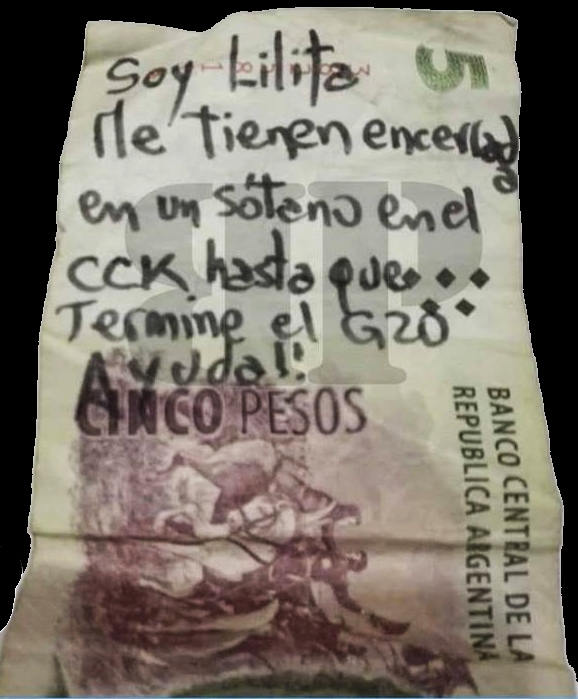 5
Soy Lilita
Me tienen encerrada
en un sótano en el
CCK hasta que...
Termine el G20
Ayuda!!
CINCO PESOS
BANCO CENTRAL DE LA
REPUBLICA ARGENTINA